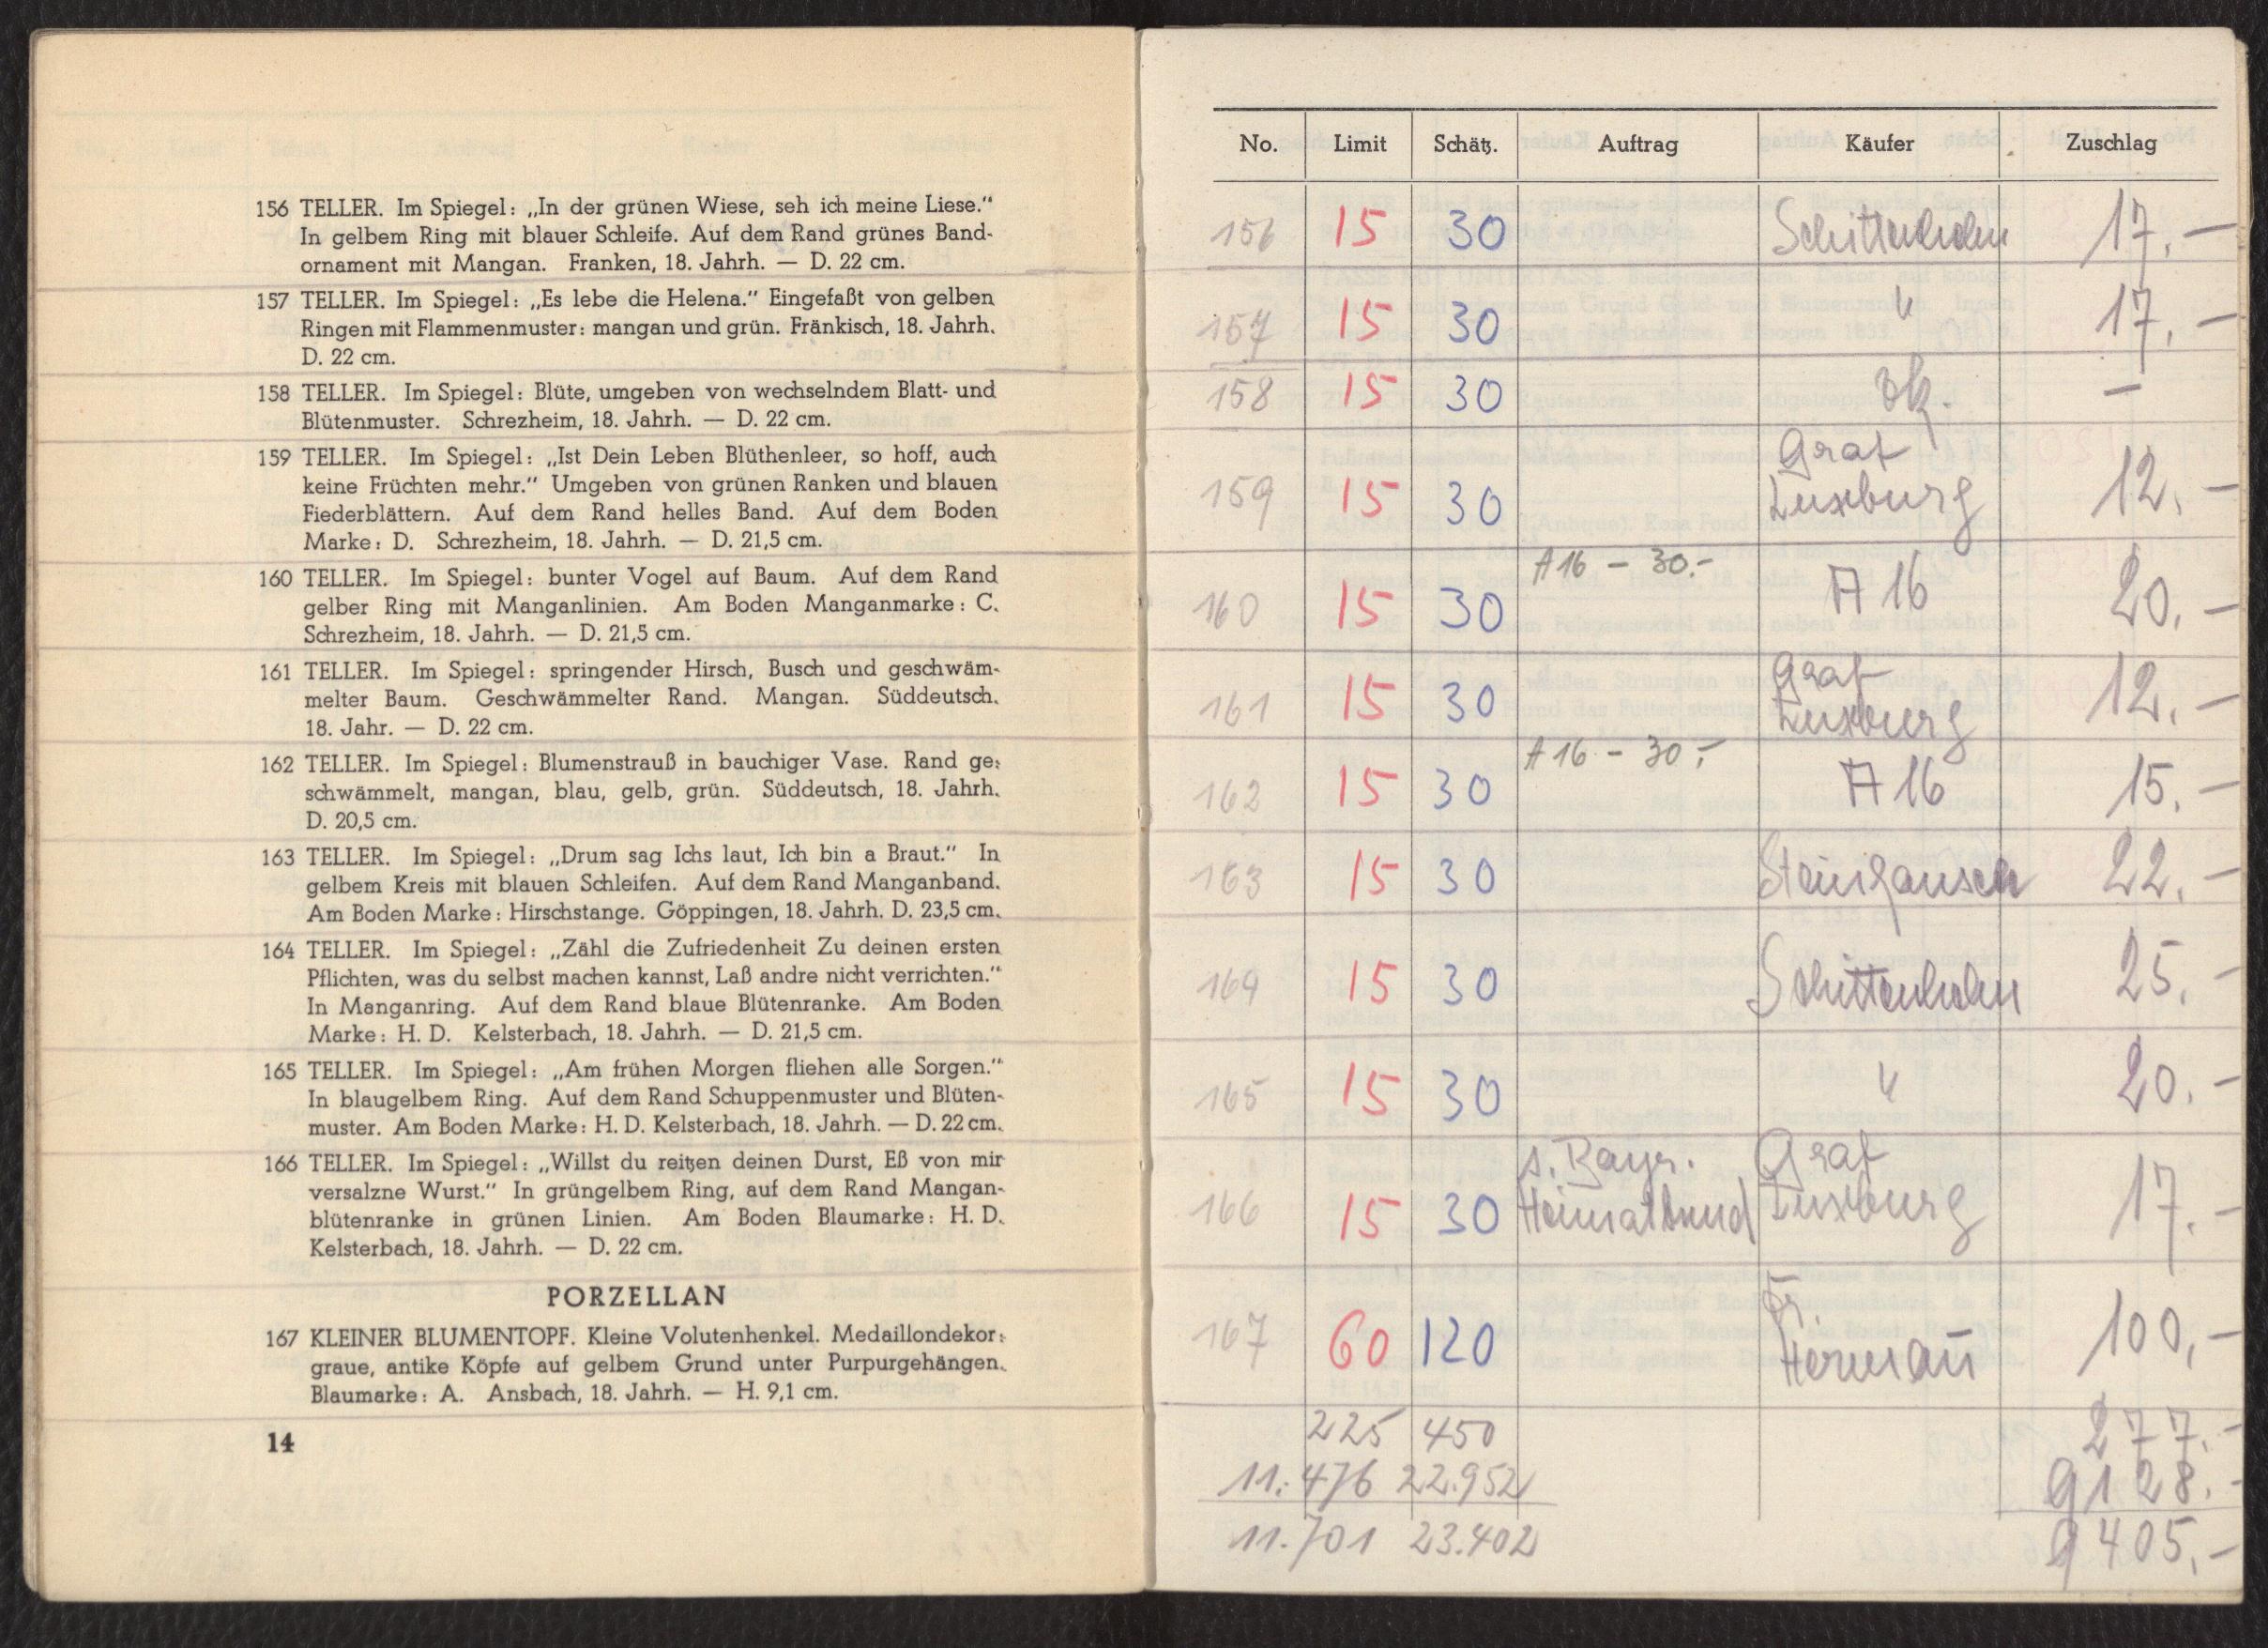 156 TELLER. Im Spiegel: „In der grünen Wiese, seh ich meine Liese."
In gelbem Ring mit blauer Schleife. Auf dem Rand grünes Band-
ornament mit Mangan. Franken, 18. Jahrh. — D. 22 cm.
157 TELLER. Im Spiegel: „Es lebe die Helena." Eingefaßt von gelben
Ringen mit Flammenmuster: mangan und grün. Fränkisch, 18. Jahrh.
D. 22 cm.
158 TELLER. Im Spiegel: Blüte, umgeben von wechselndem Blatt- und
Blütenmuster. Schrezheim, 18. Jahrh. — D. 22 cm.
159 TELLER. Im Spiegel: „Ist Dein Leben Blüthenleer, so hoff, auch
keine Früchten mehr." Umgeben von grünen Ranken und blauen
Fiederblättern. Auf dem Rand helles Band. Auf dem Boden
Marke: D. Schrezheim, 18. Jahrh. — D. 21,5 cm.
160 TELLER. Im Spiegel: bunter Vogel auf Baum. Auf dem Rand
gelber Ring mit Manganlinien. Am Boden Manganmarke: C.
Schrezheim, 18. Jahrh. — D. 21,5 cm.
161 TELLER. Im Spiegel: springender Hirsch, Busch und geschwäm-
melter Baum. Geschwämmelter Rand. Mangan. Süddeutsch.
18. Jahr. — D. 22 cm.
162 TELLER. Im Spiegel: Blumenstrauß in bauchiger Vase. Rand ge-
schwämmelt, mangan, blau, gelb, grün. Süddeutsch, 18. Jahrh.
D. 20,5 cm.
163 TELLER. Im Spiegel: „Drum sag Ichs laut, Ich bin a Braut." In
gelbem Kreis mit blauen Schleifen. Auf dem Rand Manganband.
Am Boden Marke: Hirschstange. Göppingen, 18. Jahrh. D. 23,5 cm.
164 TELLER. Im Spiegel: „Zähl die Zufriedenheit Zu deinen ersten
Pflichten, was du selbst machen kannst, Laß andre nicht verrichten."
In Manganring. Auf dem Rand blaue Blütenranke. Am Boden
Marke: H. D. Kelsterbach, 18. Jahrh. — D. 21,5 cm.
165 TELLER. Im Spiegel: „Am frühen Morgen fliehen alle Sorgen."
In blaugelbem Ring. Auf dem Rand Schuppenmuster und Blüten-
muster. Am Boden Marke: H. D. Kelsterbach, 18. Jahrh. — D. 22 cm.
166 TELLER. Im Spiegel: „Willst du reitzen deinen Durst, Eß von mir
versalzne Wurst." In grüngelbem Ring, auf dem Rand Mangan-
blütenranke in grünen Linien. Am Boden Blaumarke: H. D.
Kelsterbach, 18. Jahrh. — D. 22 cm.
PORZELLAN
167 KLEINER BLUMENTOPF. Kleine Volutenhenkel. Medaillondekor:
graue, antike Köpfe auf gelbem Grund unter Purpurgehängen.
Blaumarke: A. Ansbach, 18. Jahrh. — H. 9,1 cm.
14
No. Limit Schätz. Auftrag Käufer Zuschlag
156 15 30 Schittenhelm 17.—
157 15 30 " 17.—
158 15 30 —
159 15 30 Graf
Luxburg 12.—
160 15 30 A 16 – 30.– A 16 20.—
161 15 30 Graf
Luxburg 12.—
162 15 30 A 16 – 30.– A 16 15.—
163 15 30 22.—
164 15 30 Schittenhelm 25.—
165 15 30 " 20.—
166 15 30 s. Bayr.
Heimatbund Graf
Luxburg 17.—
167 60 120 Fr.
Hermañ 100,—
225 450 277.—
11.476 22.952 9128.—
11.701 23.402 9405.—